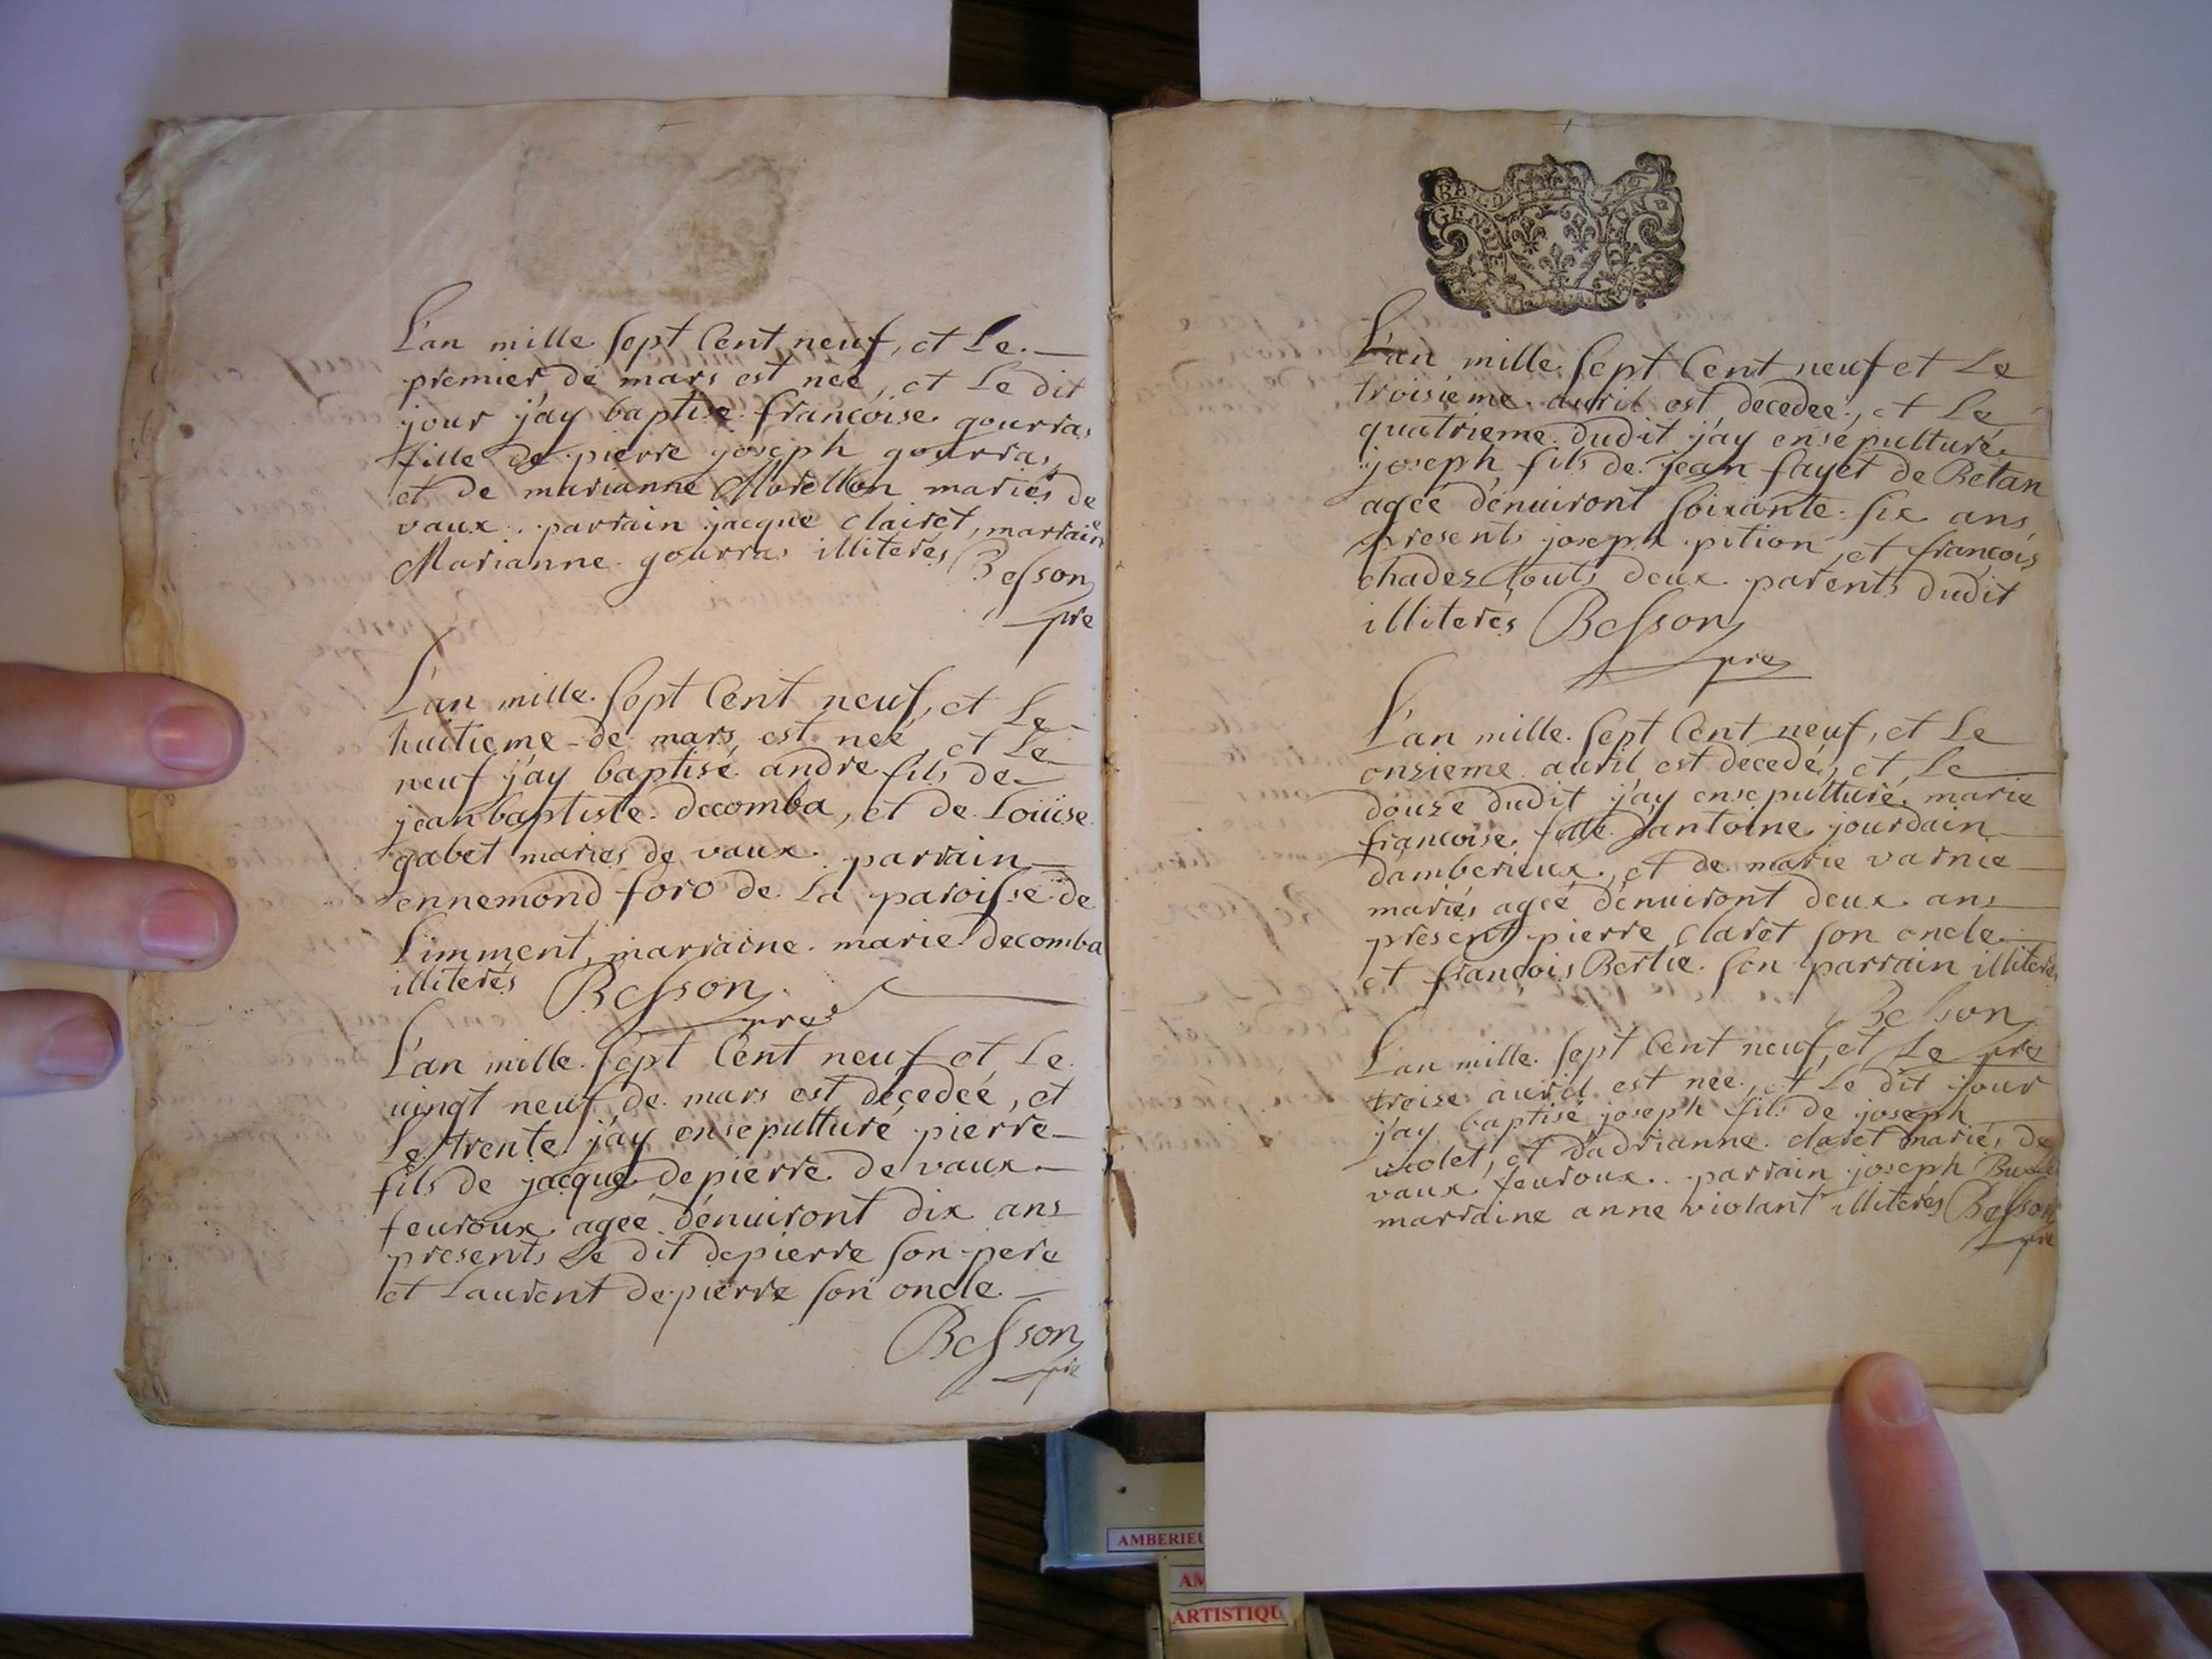 L'an mille sept Cent neuf, et Le
premier de mars est neé, et Le dit
jour j'ay baptisé françoise gourras
fille de pierre joseph gourras
et de marianne Morellon mariés de
vaux. parrain jacque clairet, marraine
Marianne gourras illiterés Besson
pre
L'an mille sept Cent neuf, et Le
huitieme de mars est neé, et Le
neuf j'ay baptisé andre fils de
jean baptiste decomba, et de Loüise
gabet mariés de vaux. parrain
ennemond foro de La paroisse de
L'imment, marraine marie decomba
illiterés Besson
pre
L'an mille sept Cent neuf et Le
uingt neuf de mars est decedeé, et
Le trente j'ay ensepulturé pierre
fils de jacque depierre de vaux
feuroux ageé d'enuiront dix ans
presents Le dit depierre son pere
et Laurent depierre son oncle
Besson
pre
GEN
L'an mille sept Cent neuf et Le
troisieme auril est decedeé, et Le
quatrieme dudit j'ay ensépulturé
joseph fils de jean fayet de Betan
ageé d'enuiront soixante six ans
presents joseph pition, et françois
chadez touts deux parents dudit
illiterés Besson
pre
L'an mille sept Cent neuf, et Le
onzieme auril est decedé, et Le
douze dudit j'ay ensepulturé marie
francoise fille d'antoine jourdain
d'amberieux, et de marie varnie
mariés ageé d'enuiront deux ans
present pierre claret son oncle
et françois Bertie son parrain illiterés
Besson
L'an mille sept Cent neuf, et Le pre
treize auril est neé, et Le dit jour
j'ay baptisé joseph fils de joseph
violet, et d'adrianne claret mariés de
vaux feuroux. parrain joseph
marraine anne violant illiterés Besson
pre
AMBERIEU
AM
ARTISTIQU